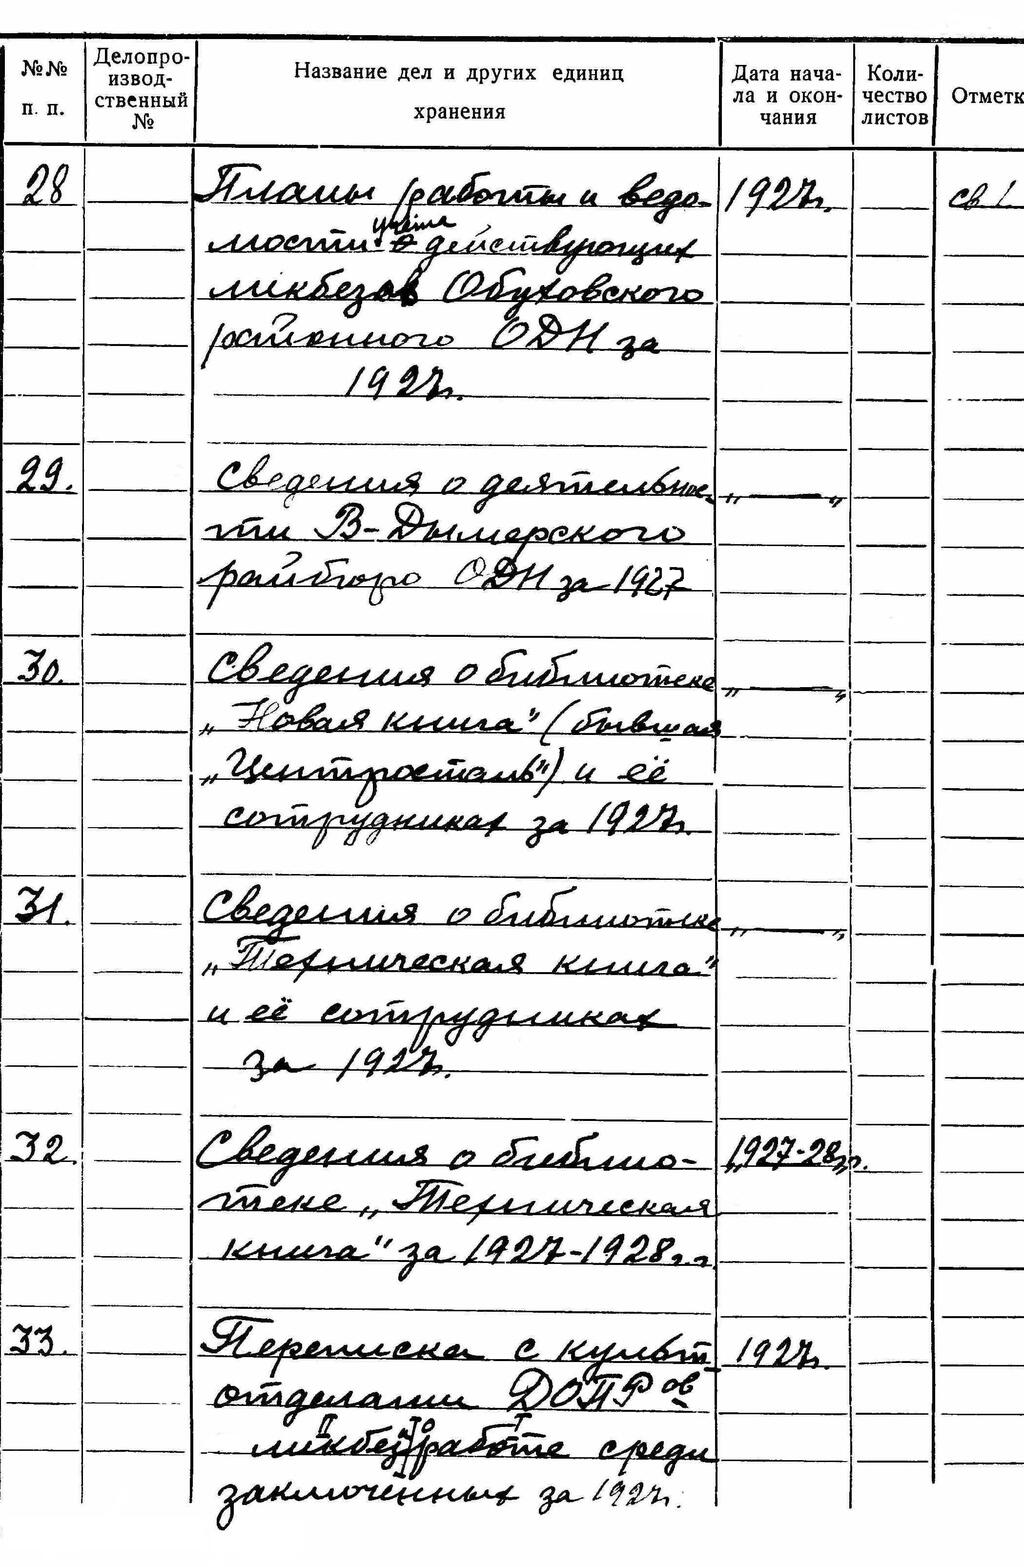 №№ п. п. Делопроизводственный № Название дел и других единиц хранения Дата начала и окончания Количество листов Отметк
28 Планы работы и ведо- 1927г. св 1.
учёта
мости о действующих
ликбезов Обуховского
районного ОДН за
1927г.
29. Сведения о деятельнос- „ — „
ти В-Дымерского
райбюро ОДН за 1927
30. Сведения о библиотеке „ — „
„Новая книга" (бывшая
„Центросталь") и её
сотрудниках за 1927г.
31. Сведения о библиотеке „ — „
„Техническая книга"
и её сотрудниках
за 1927г.
32. Сведения о библио- 1927-28г.г.
теке „Техническая
книга" за 1927-1928г.г.
33. Переписка с культ- 1927г.
отделами ДОПРов
ликбезработе среди
заключенных за 1927г.